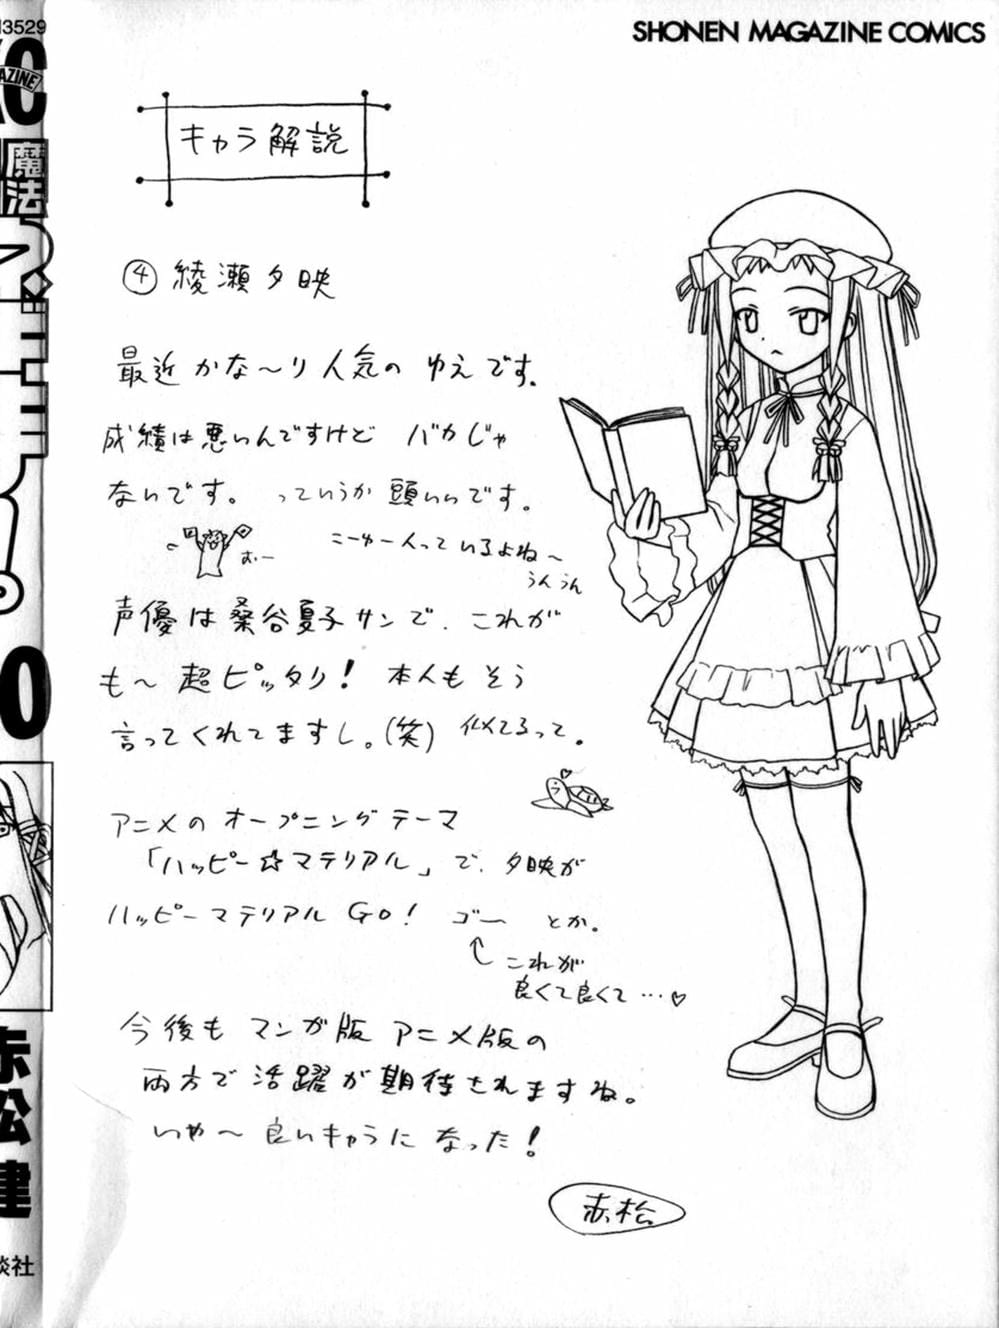 SHONEN MAGAZINE COMICS
キャラ解説
④ 綾瀬夕映
最近かな〜り人気の ゆえです。
成績は悪いんですけど バカじゃ
ないです。 っていうか 頭いいです。
おー
こーゆー人っているよね〜
うんうん
声優は桑谷夏子サンで、これが
も〜 超ピッタリ! 本人もそう
言ってくれてますし。(笑) 似てるって。
アニメのオープニングテーマ
「ハッピー☆マテリアル」で、夕映が
ハッピーマテリアル GO! ゴー とか。
これが
良くて良くて…♡
今後も マンガ版 アニメ版の
両方で 活躍が期待されますね。
いや〜 良いキャラに なった!
赤松
3529
魔法
0
赤松健
談社